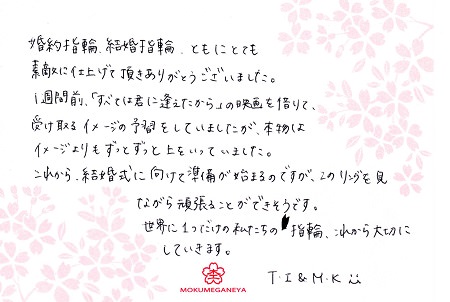 婚約指輪、結婚指輪、ともにとても
素敵に仕上げて頂きありがとうございました。
1週間前、「すべては君に逢えたから」の映画を借りて、
受け取るイメージの予習をしていましたが、本物は
イメージよりもずっとずっと上をいっていました。
これから、結婚式に向けて準備が始まるのですが、このリングを見
ながら頑張ることができそうです。
世界に1つだけの私たちの指輪、これから大切に
していきます。
T.I & M.K
MOKUMEGANEYA